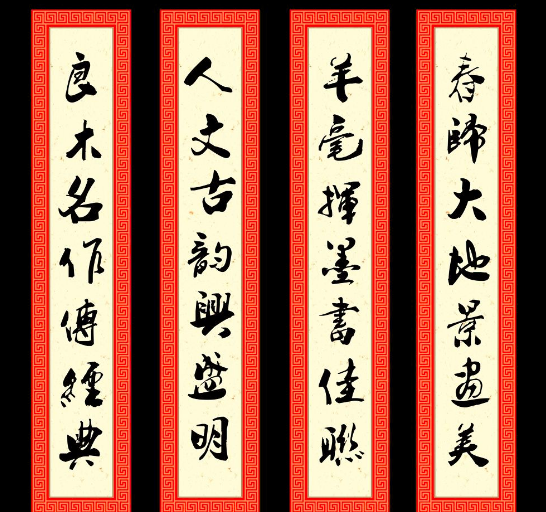 春歸大地景畫美
羊毫揮墨書佳聯
人文古韵興盛明
良木名作傳經典